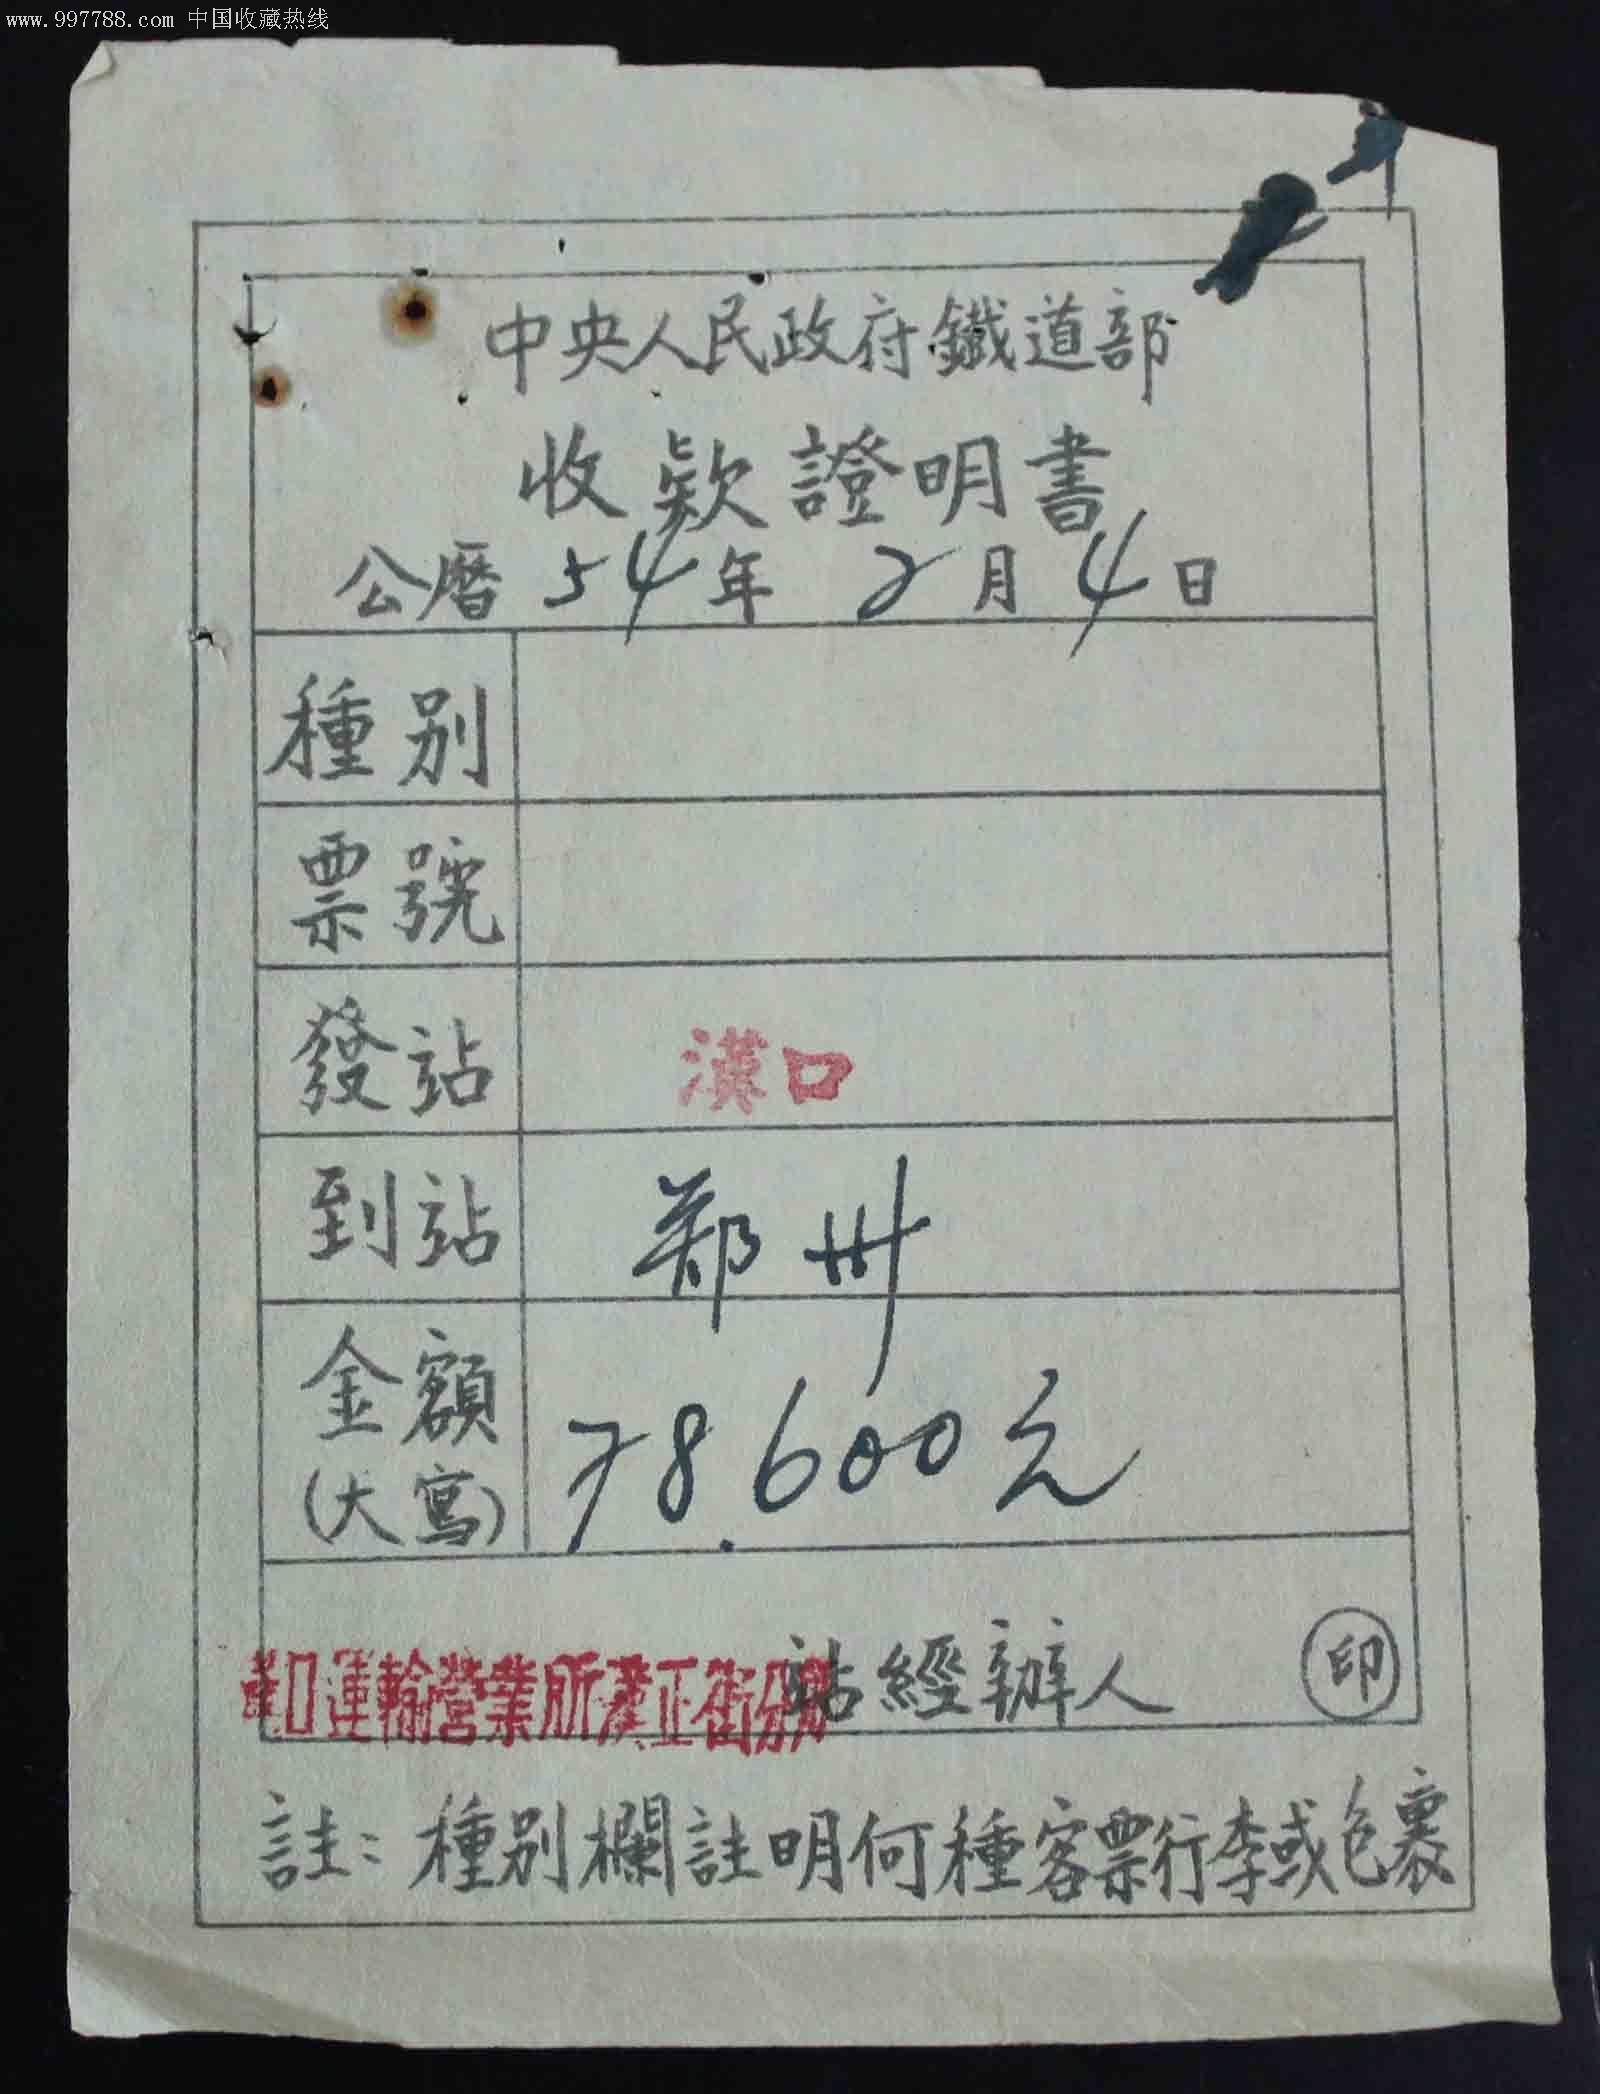 www.997788.com 中国收藏热线
中央人民政府鐵道部
收款證明書
公曆 54年 2月 4日
種别
票號
發站 漢口
到站 郑州
金額 78.600元
(大寫)
漢口運輸營業所漢正街分所 站經辦人 印
註：種别欄註明何種客票行李或包裹